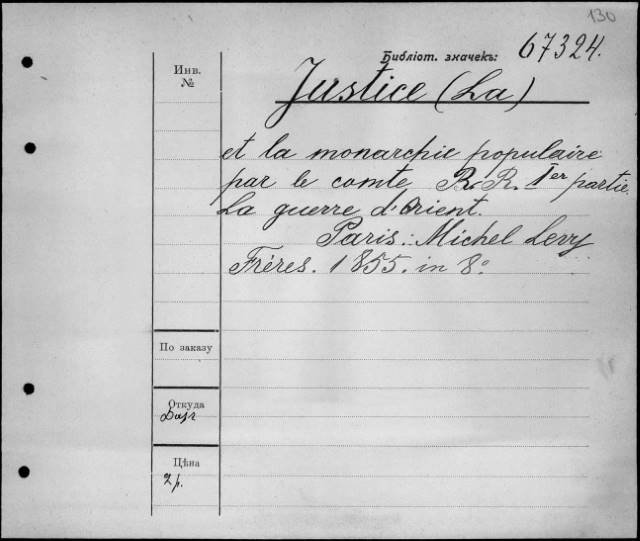 130
Библіот. значекъ: 67324.
Инв.
№
Justice (La)
et la monarchie populaire
par le comte R. R. 1er partie.
La guerre d'Orient.
Paris: Michel Levy
Frères. 1855. in 8°
По заказу
Откуда
Цѣна
2 р.